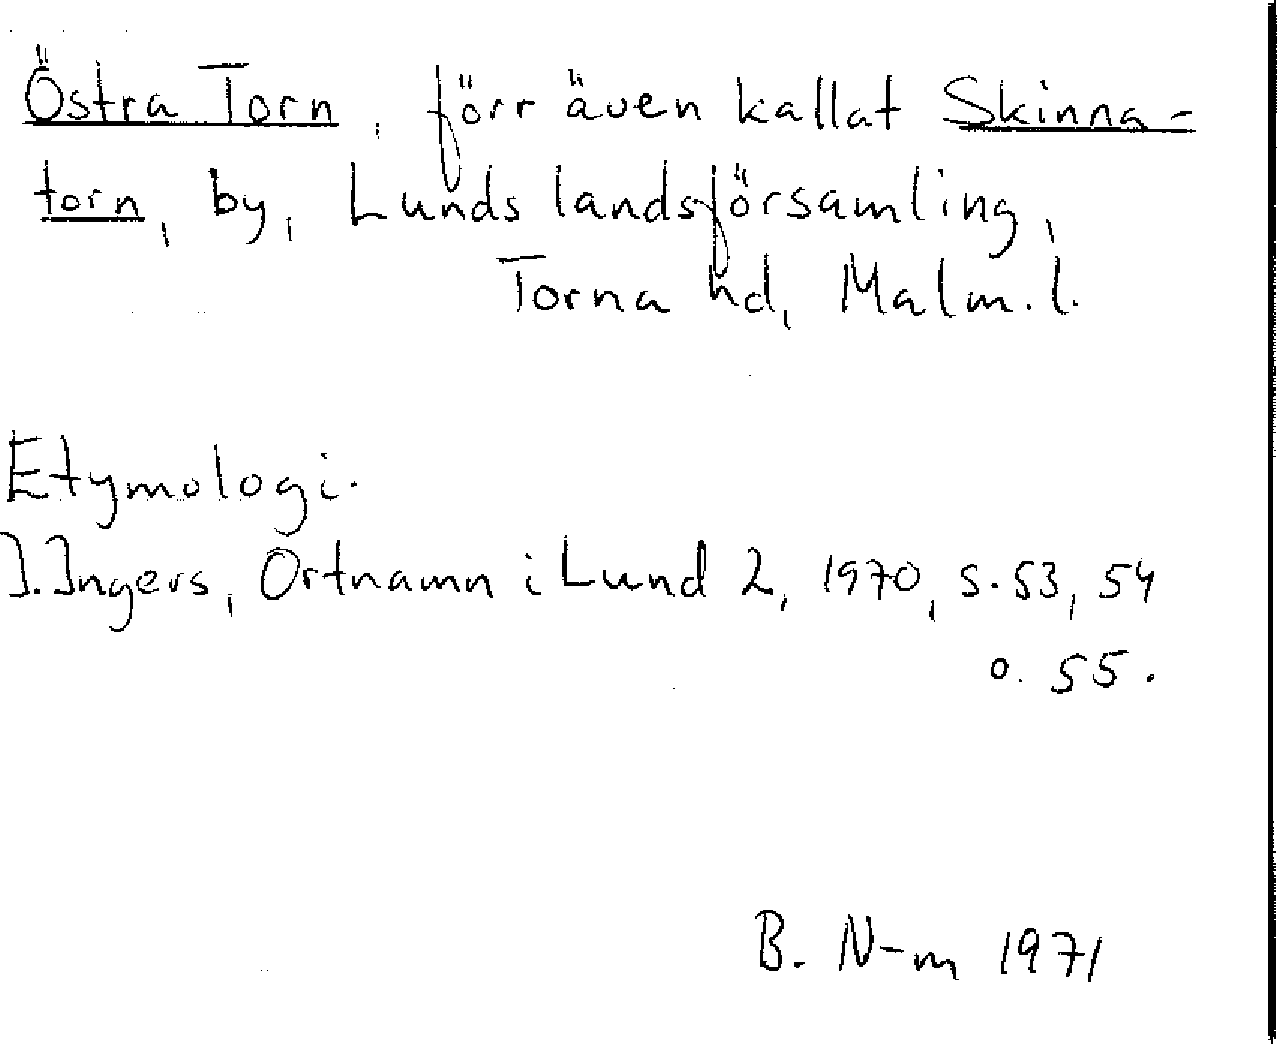 Östra Torn, förr även kallat Skinna-
torn, by, Lunds landsförsamling,
Torna hd, Malm. l.
Etymologi.
I. Ingers, Ortnamn i Lund 2, 1970, s. 53, 54
o. 55.
B. N-m 1971